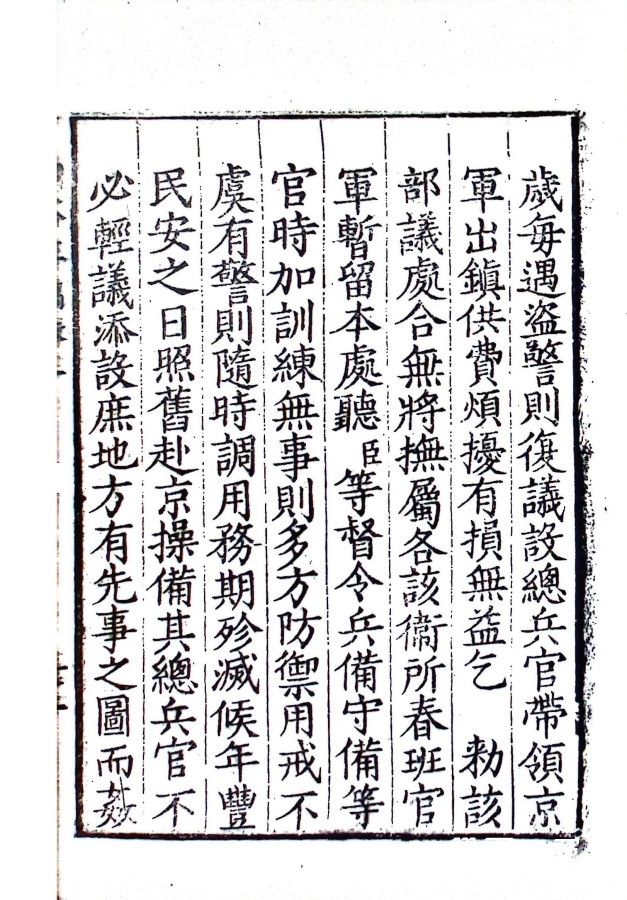 歲每遇盜警則復議設總兵官帶領京
軍出鎮供費煩擾有損無益乞　勑該
部議處合無將撫屬各該衞所春班官
軍暫留本處聽臣等督令兵備守備等
官時加訓練無事則多方防禦用戒不
虞有警則隨時調用務期殄滅候年豐
民安之日照舊赴京操備其總兵官不
必輕議添設庶地方有先事之圖而姦